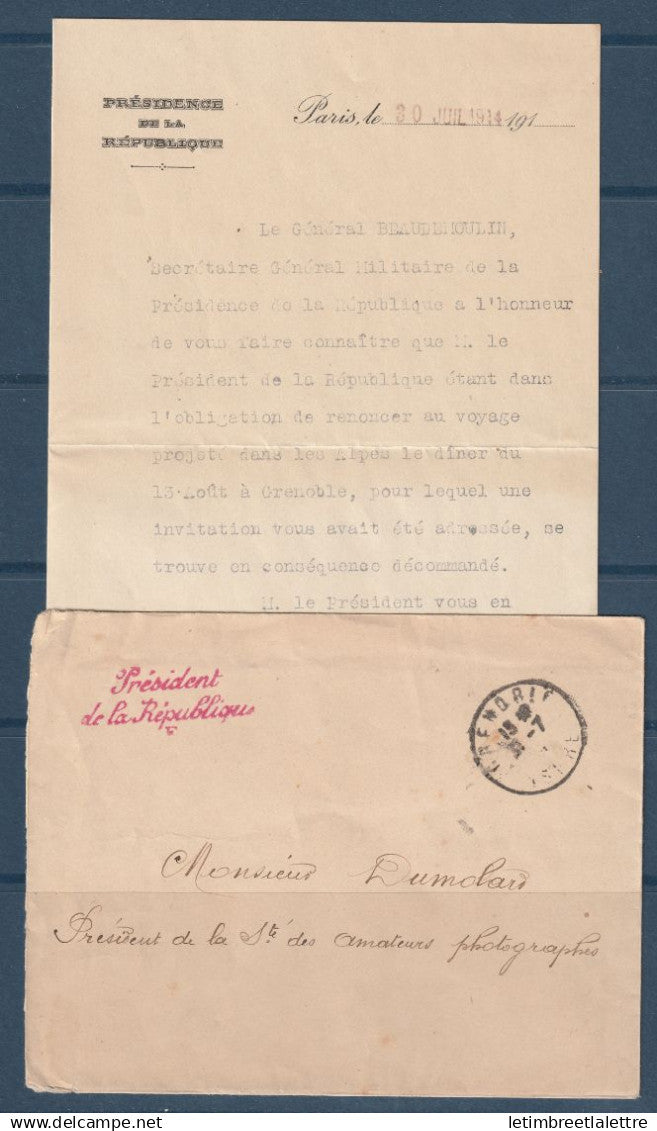 PRÉSIDENCE
DE LA
RÉPUBLIQUE
Paris, le 30 JUIL 1914 191
Le Général BEAUDEMOULIN,
Secrétaire Général Militaire de la
Présidence de la République a l'honneur
de vous faire connaître que M. le
Président de la République étant dans
l'obligation de renoncer au voyage
projeté dans les Alpes le dîner du
13 Août à Grenoble, pour lequel une
invitation vous avait été adressée, se
trouve en conséquence décommandé.
M. le Président vous en
Président
de la République
GRENOBLE
ISERE
Monsieur Dumolard
Président de la Sté des amateurs photographes
letimbreetlalettre
delcampe.net